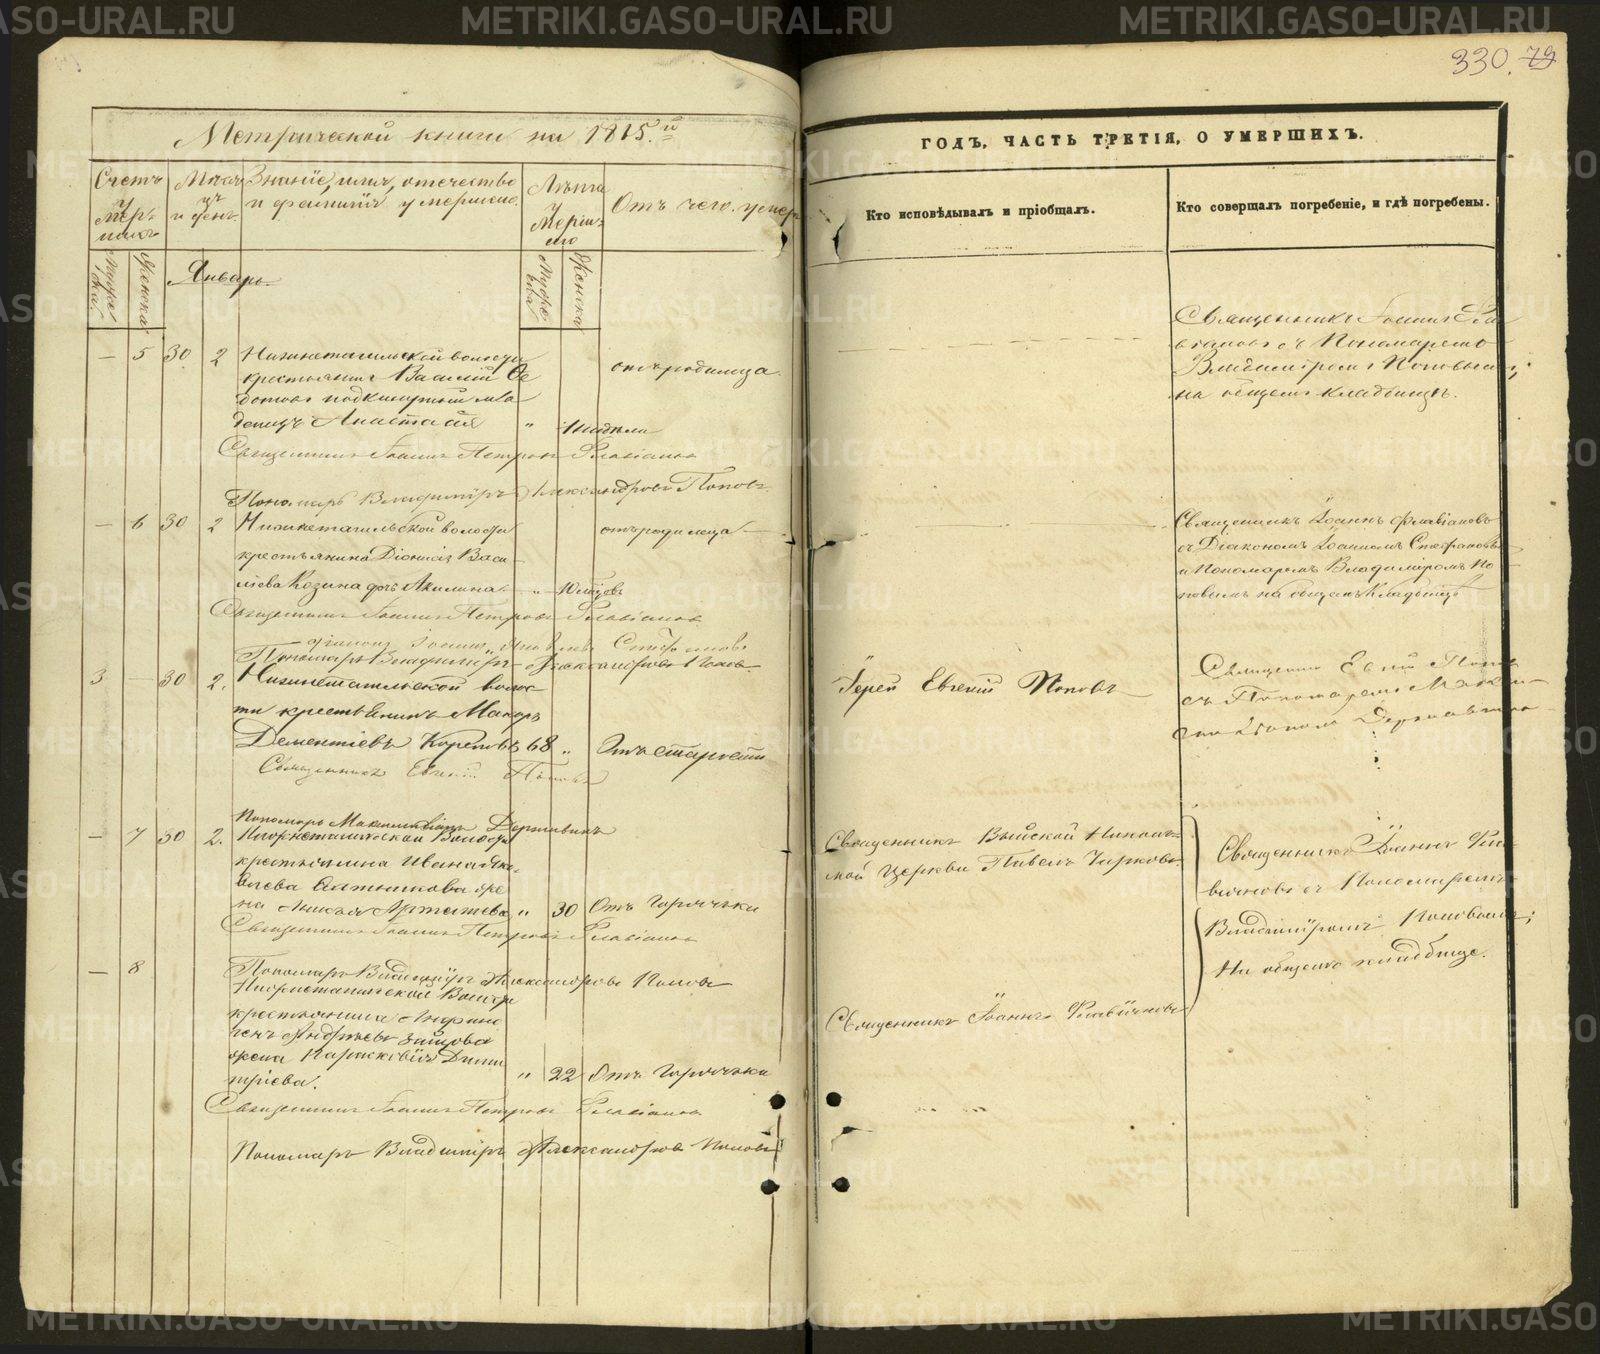 330. 79
Метрической книги на 1865.й
ГОДЪ, ЧАСТЬ ТРЕТІЯ, О УМЕРШИХЪ.
Счетъ умершихъ
Мужеска
Женска
Мѣсяцъ и день
Званіе, имя, отечество
и фамилія умершаго.
Лѣта умершаго
Мужеска
Женска
Отъ чего умеръ
Кто исповѣдывалъ и пріобщалъ.
Кто совершалъ погребеніе, и гдѣ погребены.
Январь
— 5 30 2 Нижнетагильской волости
крестьянина Василій Ѳе
дотова подкинутый мла
денецъ Анастасія „ 1 недѣли
отъ родимца.
Священникъ Іоаннъ Фла
віановъ съ Пономаремъ
Владиміромъ Поповымъ,
на общемъ кладбищѣ.
Священникъ Іоаннъ Петровъ Флавіановъ
Пономарь Владиміръ Александровъ Поповъ
— 6 30 2 Нижнетагильской волости
крестьянина Діонисія Васи
ліева Козина дочь Акилина „ 10 мѣсцовъ
отъ родимца
Священникъ Іоаннъ Флавіановъ
съ Діакономъ Іоанномъ Стефановымъ
и Пономаремъ Владиміромъ По
повымъ на общемъ кладбищѣ
Священникъ Іоаннъ Петровъ Флавіановъ
діаконъ Іоаннъ Стефановъ
Пономарь Владиміръ Александровъ Поповъ
3 — 30 2. Нижнетагильской волос
ти крестьянинъ Макаръ
Дементіевъ 68 „ Отъ старости
Іерей Евгеній Поповъ
Священникъ Евгеній Попов
съ Пономаремъ
Державин
Священникъ Евгеній Поповъ
Пономарь Державинъ
— 7 30 2. Нижнетагильской Волости
крестьянина Ивана Яко
влева же
на „ 30 Отъ Горячьки
Священникъ Выйской Николь
ской Церкви Павелъ Чирковъ.
Священникъ Іоаннъ Фла
віановъ съ Пономаремъ
Владиміромъ Поповымъ;
На общемъ кладбищѣ.
Священникъ Іоаннъ Петровъ Флавіановъ
Пономарь Владиміръ Александровъ Поповъ
— 8 Нижнетагильской Волости
крестьянина
Андреева Зайцова
жена Параскевія Дими
тріева. „ 22 Отъ Горячьки
Священникъ Іоаннъ Флавіановъ
Священникъ Іоаннъ Петровъ Флавіановъ
Пономарь Владиміръ Александровъ Поповъ
METRIKI.GASO-URAL.RU